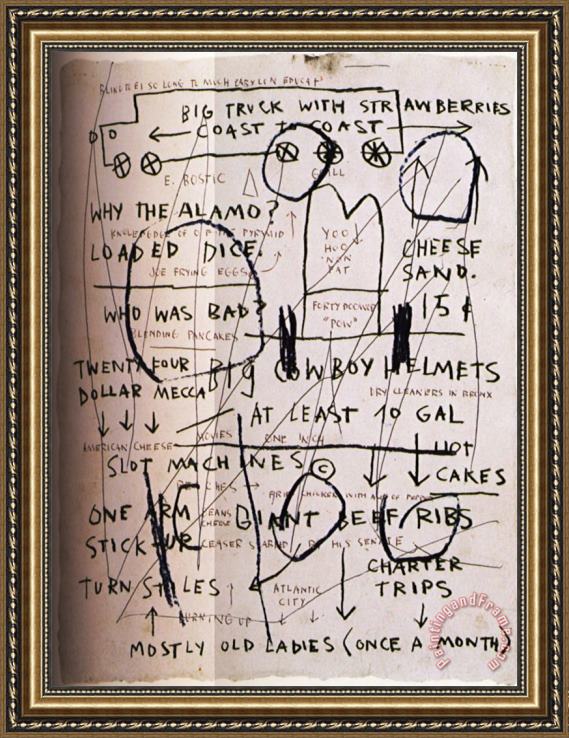 BIG TRUCK WITH STRAWBERRIES
COAST TO COAST
E. ROSTIC
WHY THE ALAMO?
KNOWLEDGE OF THE PYRAMID
LOADED DICE.
JOE FRYING EGGS
YOO
HOO
NON
FAT
CHEESE
SAND.
15¢
WHO WAS BAD?
BLENDING PANCAKES
"POW"
TWENTY FOUR
DOLLAR MECCA
BIG COWBOY HELMETS
DRY CLEANERS IN BRONX
AT LEAST 10 GAL
AMERICAN CHEESE
MOVIES
ONE INCH
HOT
CAKES
SLOT MACHINES ©
ONE ARM
STICKUR
BEANS
CHEESE
GIANT BEEF RIBS
CEASER STABBED BY HIS SENATE
CHARTER
TRIPS
TURN STILES
ATLANTIC
CITY
TURNING UP
MOSTLY OLD LADIES (ONCE A MONTH)
PaintingandFrame.com